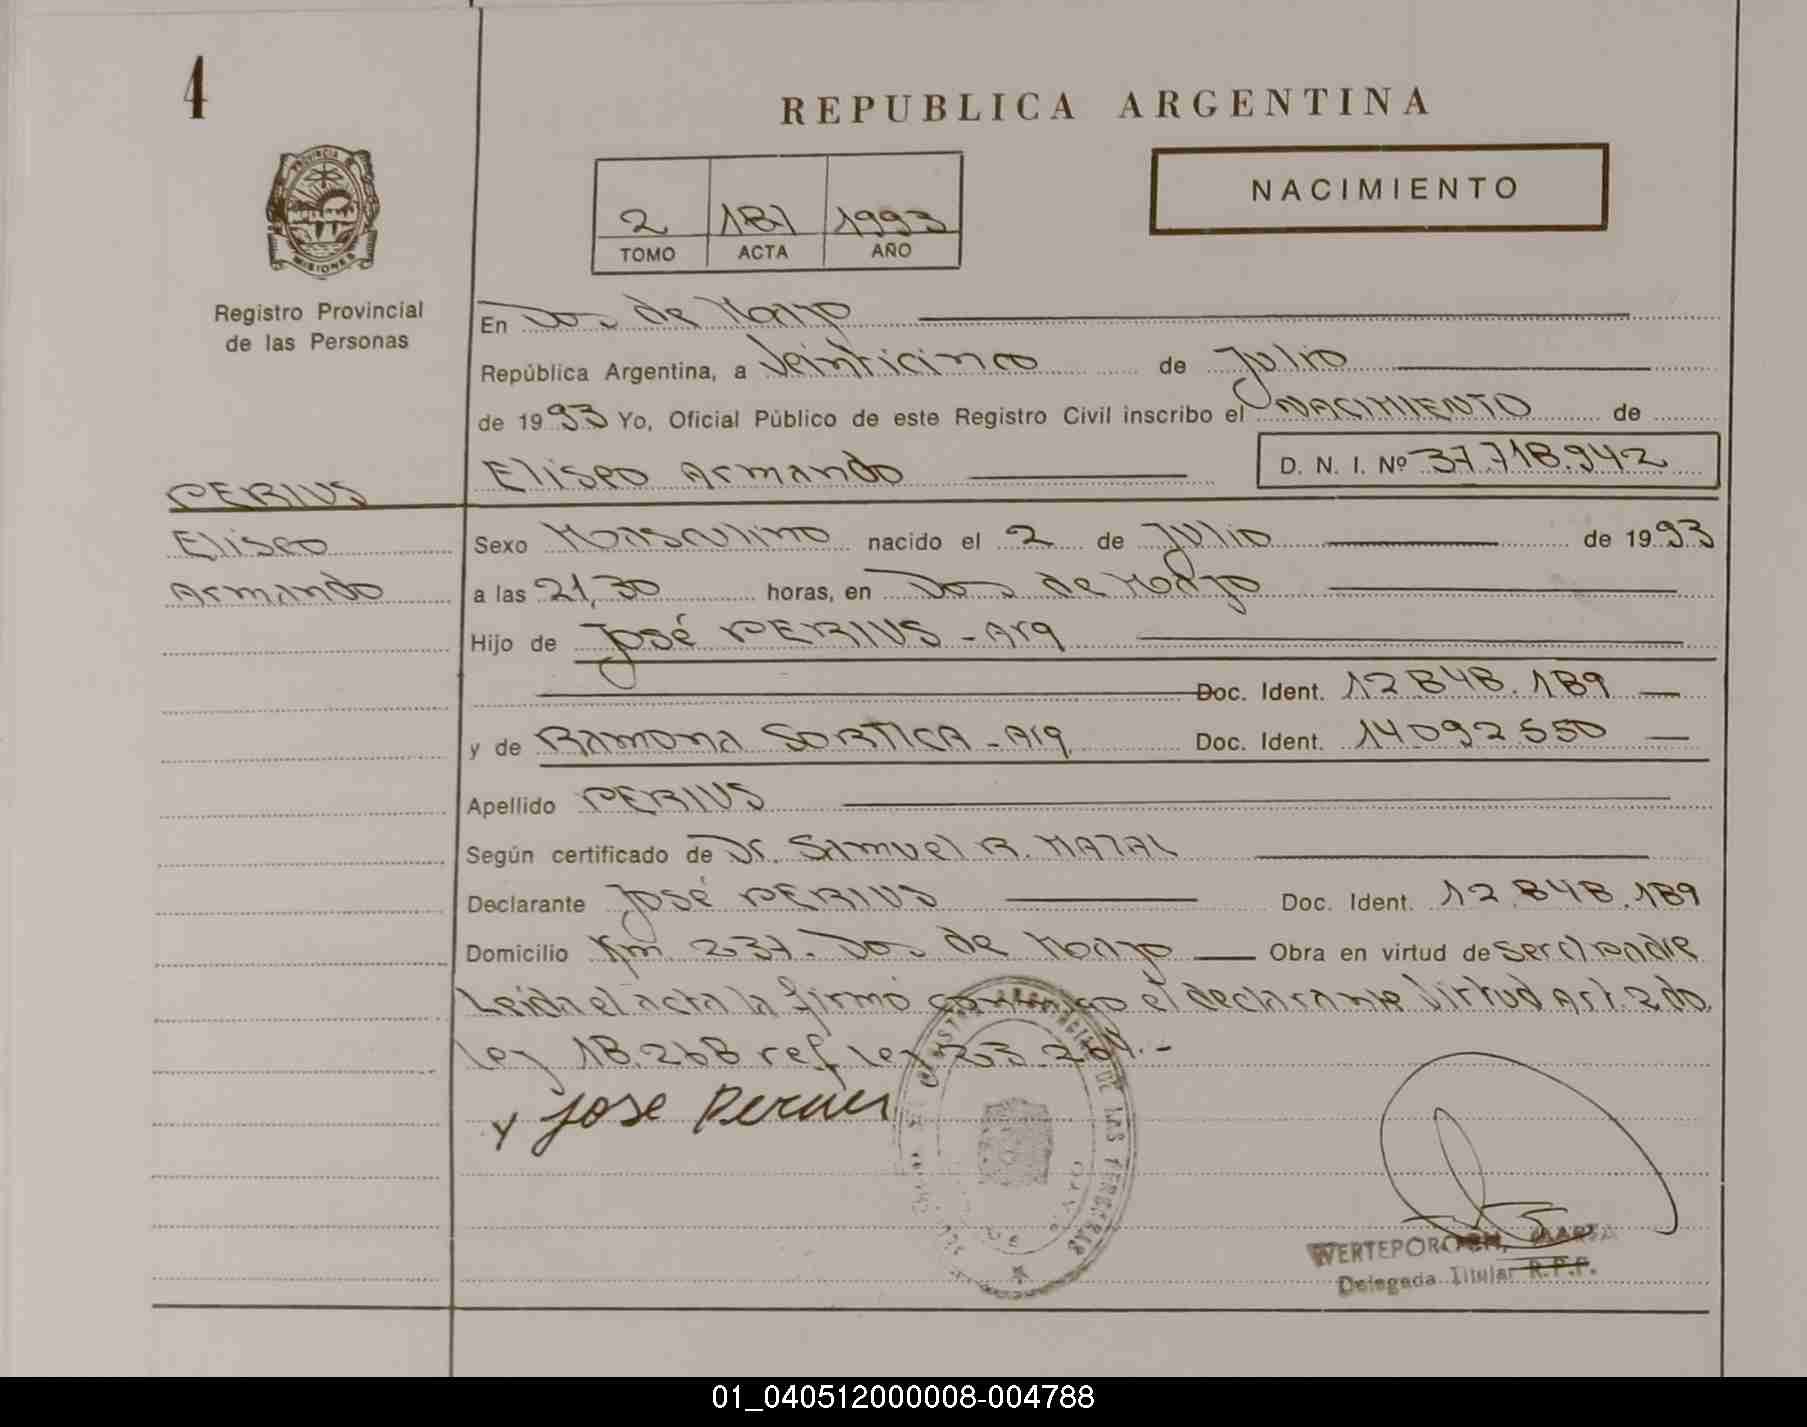 4
REPUBLICA ARGENTINA
PROVINCIA
MISIONES
Registro Provincial
de las Personas
2 181 1993
TOMO ACTA AÑO
NACIMIENTO
En Dos de Mayo
República Argentina, a veinticinco de Julio
de 1993 Yo, Oficial Público de este Registro Civil inscribo el NACIMIENTO de
Eliseo Armando D. N. I. Nº 37.718.942
PERIUS
Eliseo
Armando
Sexo Masculino nacido el 2 de Julio de 1993
a las 21,30 horas, en Dos de Mayo
Hijo de José PERIUS - Arg
Doc. Ident. 12.848.189
y de Ramona SORTICA - Arg Doc. Ident. 14.092.550
Apellido PERIUS
Según certificado de Dr. Samuel R. MAZAL
Declarante José PERIUS Doc. Ident. 12.848.189
Domicilio Km. 237. Dos de Mayo Obra en virtud de ser el padre
Leida el acta la firmó conmigo el declarante. Virtud Art. 2 do.
Ley 18.268 ref. Ley 23.264.-
y Jose Perius
DE LAS PERSONAS
WERTEPOROCH, MARTA
Delegada Titular R.P.P.
01_040512000008-004788